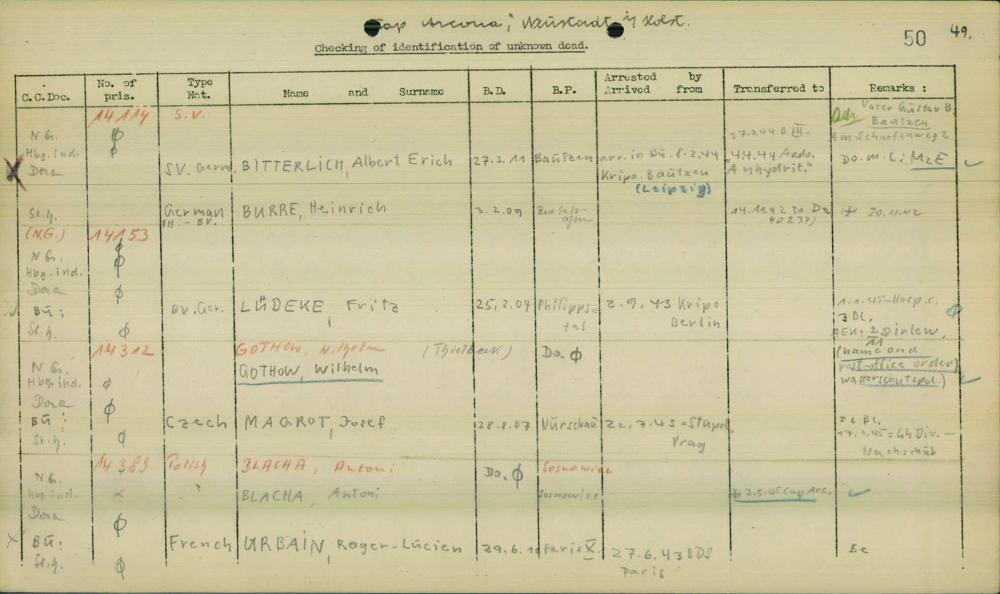 Cap Arcona; Neustadt i/ Holst.
50 49.
Checking of identification of unknown dead.
C.C.Doc. No. of pris. Type Nat. Name and Surname B.D. B.P. Arrested by Arrived from Transferred to Remarks :
14114 S.V. Vater Gustav B.
Bautzen
N.G. ∅ 27.2.44 B III. Am Scharfenweg 2
Hbg. ind. ∅
Dora SV. Germ BITTERLICH, Albert Erich 27.3.11 Bautzen arr. in Bu. 8.2.44 4.4.44 Ando. Do. M.C.: MzE
Kripo. Bautzen "Anhydrit."
(Leipzig)
St.h. German BURRE, Heinrich 3.2.09 14.11.42 to Da ✝ 20.11.42
(N.G.) 14153 ∅
N.G. ∅
Hbg. ind.
Dora ∅
Bu: BV. Ger. LÜDEKE, Fritz 25.2.04 Philipps= 2.9.43 Kripo 1.1.45-
St.h. ∅ tal Berlin 3 Bl.
AEK: 2 Dirlew,
14312 GOTHOW, Wilhelm (Thielbeck) Do. ∅ 11
N.G. GOTHOW, Wilhelm (name and
Hbg. ind. ∅ post-office order)
Dora ∅ wasserschutzpol.)
Bu: Czech MAGROT, Josef 28.8.07 Nürschau 22.7.43 = Stapol 26 Bl.
St.h. ∅ Prag 17.1.45 = Div. —
Nachschub
14389 Polish BLACHA, Antoni Do. ∅ Sosnowice
N.G.
Hbg. ind. x BLACHA, Antoni Sosnowice ✝ 3.5.45 Cap Arc.
Dora ∅
X Bu: French URBAIN, Roger-Lucien 29.6.10 Paris X. 27.6.43 BDS Be
St.h. ∅ Paris